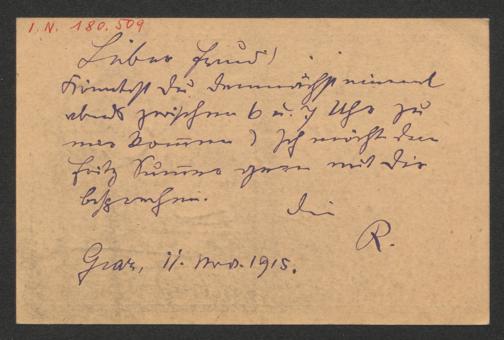 I. N. 180.509
Lieber Freund!
Könntest Du demnächst einmal
abends zwischen 6 u. 7 Uhr zu
mir kommen? Ich möchte den
Fritz gern mit Dir
besprechen.
Dein
R.
Graz, 11. Nov. 1915.